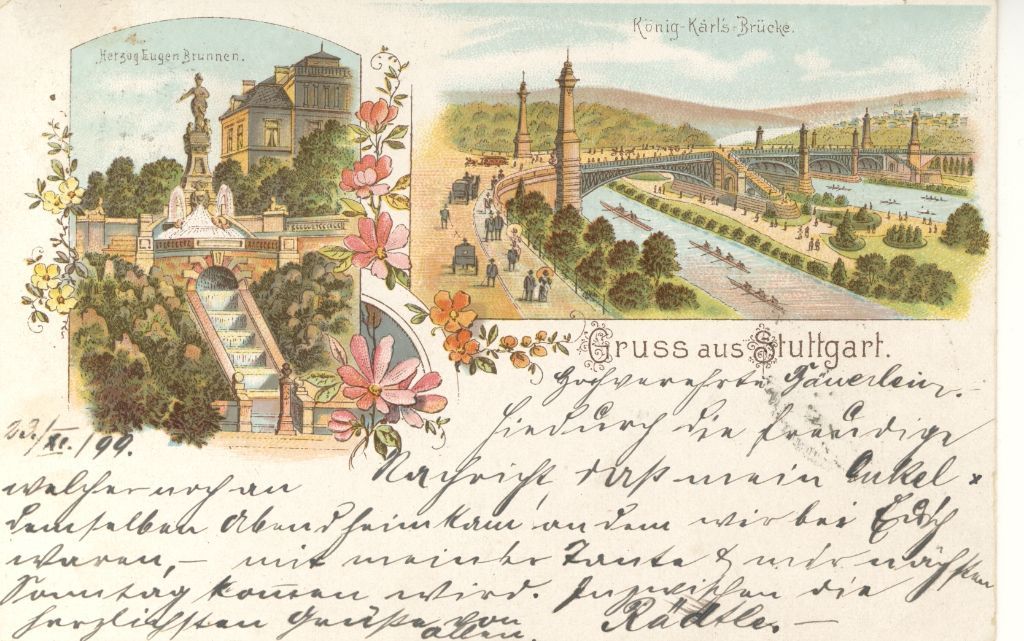 Herzog Eugen Brunnen.
König-Karl's-Brücke.
Gruss aus Stuttgart.
Hochverehrte
23./XI./99.
Hiedurch die freudige
Nachricht, daß mein Onkel
welcher noch an
demselben Abend heimkam, an dem wir bei Euch
waren, – mit meiner Tante & mir nächsten
Sonntag kommen wird. Inzwischen die
herzlichsten Grüße von
allen. Rädtle. –